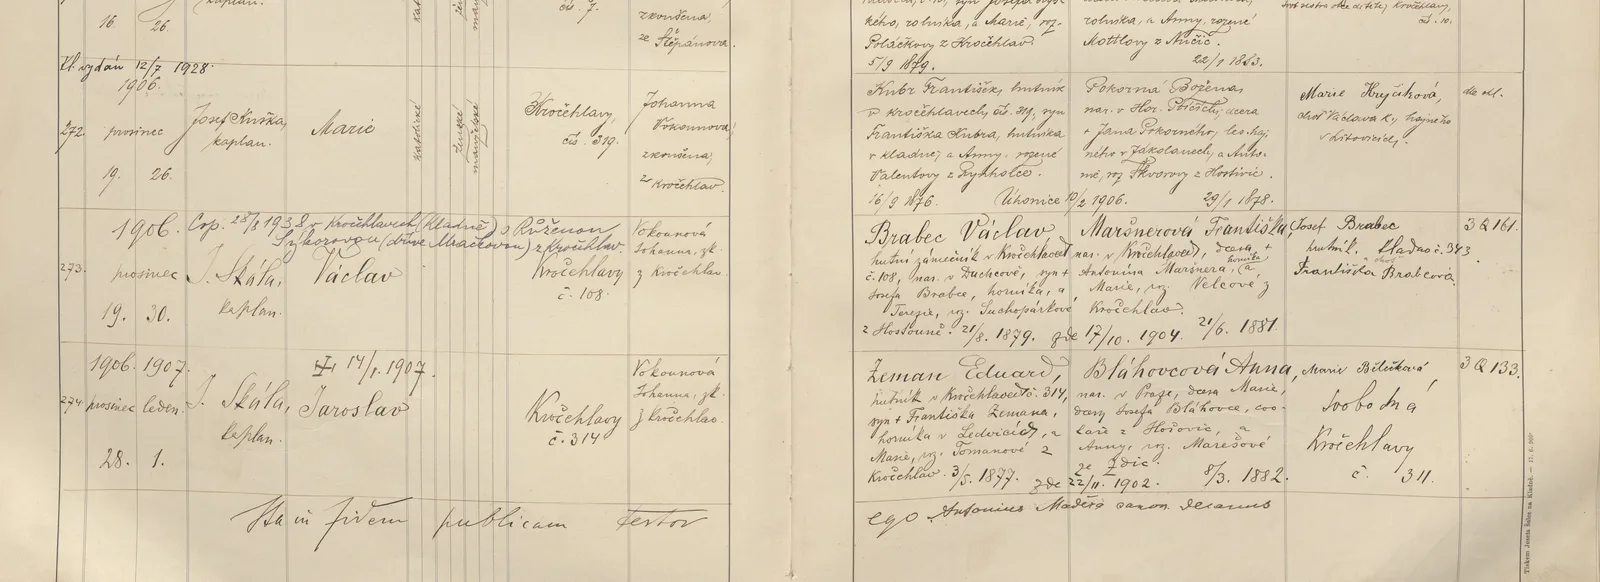 kaplan.
čís. 7.
16. 26.
zkoušená,
ze Štěpánova.
kého, rolníka, a Marie, roz.
Poláčkovy z Kročehlav.
5/9 1879.
rolníka, a Anny, rozené
Mottlovy z Nučic.
22/1 1883.
Kročehlavy,
čís. 10.
Kř. l. vydán 12/7 1928.
1906.
272. prosinec
19. 26.
Josef Kuška,
kaplan.
Marie
katolické
ženské
manželské
Kročehlavy,
čís. 319.
Johanna
Vokounnová,
zkoušená,
z Kročehlav.
Kubr František, hutník
v Kročehlavech, čís. 319, syn
Františka Kubra, hutníka
v Kladně, a Anny, rozené
Valentovy z Lynholce.
16/9 1876.
Úhonice 10/2 1906.
Pokorná Božena,
nar. v Hor. Počicích, dcera
+ Jana Pokorného, les. haj-
ného v Zákolanech, a Anto-
nie, roz. Škvorovy z Hostivic.
29/1 1878.
Marie Krejčíková,
choť Václava K., hajného
v Litovicích.
1906.
Cop. 28/8 1938 v Kročehlavech (Kladně) s Růženou
Sýkorovou (dříve Mračkovou) z Kročehlav.
273. prosinec
19. 30.
J. Skála,
kaplan.
Václav
Kročehlavy
č. 108.
Vokounová
Johanna, zk.
z Kročehlav.
Brabec Václav
hutní zámečník v Kročehlavech
č. 108, nar. v Duchcově, syn +
Josefa Brabce, horníka, a
Terezie, roz. Suchopárkové
z Hostouně. 21/8. 1879.
zde 17/10. 1904.
Maršnerová Františka
nar. v Kročehlavech, dcera +
Antonína Maršnera, horníka, a
Marie, roz. Velcové z
Kročehlav.
21/6. 1881.
Josef Brabec
hutník, Kladno č. 343
a choť
Františka Brabcová.
3 Q 161.
1906. 1907.
274. prosinec leden.
28. 1.
J. Skála,
kaplan.
† 14/1. 1907.
Jaroslav
Kročehlavy
č. 314
Vokounová
Johanna, zk.
z Kročehlav.
Zeman Eduard,
hutník v Kročehlavech č. 314,
syn + Františka Zemana,
horníka v Ledvicích, a
Marie, roz. Tomanové z
Kročehlav. 3/5. 1877.
zde 22/11. 1902.
Bláhovcová Anna,
nar. v Praze, dcera Marie,
dcery Josefa Bláhovce, cvo-
kaře z Hošovic, a
Anny, roz. Marešové
ze Zdic.
8/3. 1882.
Marie Běličková
Svobodná
Kročehlavy
č. 311.
3 Q 133.
Ita in fidem publicam testor
ego Antonius Maděra canon. decanus